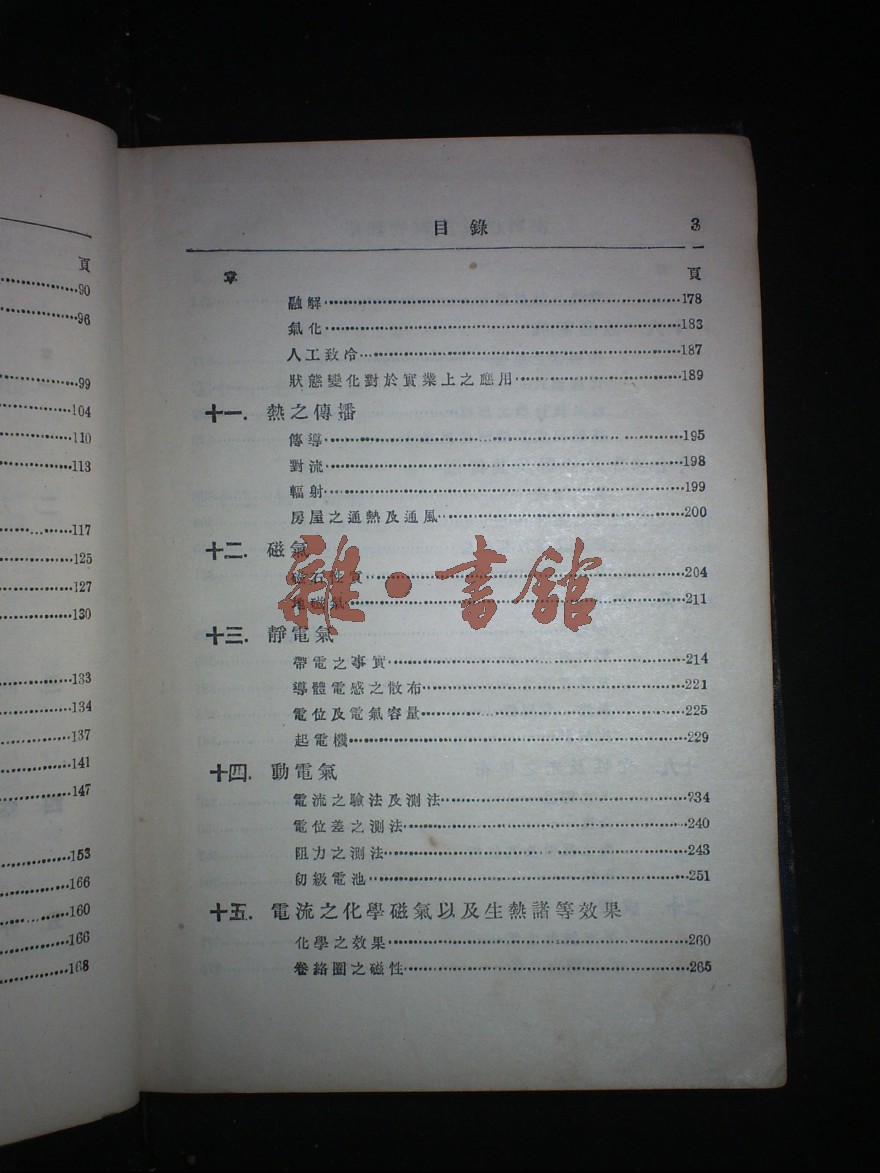 頁
90
96
99
104
110
113
117
125
127
130
133
134
137
141
147
153
166
160
166
168
目錄 3
章 頁
融解 178
氣化 183
人工致冷 187
狀態變化對於實業上之應用 189
十一. 熱之傳播
傳導 195
對流 198
輻射 199
房屋之通熱及通風 200
十二. 磁氣
磁石性質 204
地磁氣 211
雜·書館
十三. 靜電氣
帶電之事實 214
導體電感之散布 221
電位及電氣容量 225
起電機 229
十四. 動電氣
電流之驗法及測法 234
電位差之測法 240
阻力之測法 243
初級電池 251
十五. 電流之化學磁氣以及生熱諸等效果
化學之效果 260
卷絡圈之磁性 265